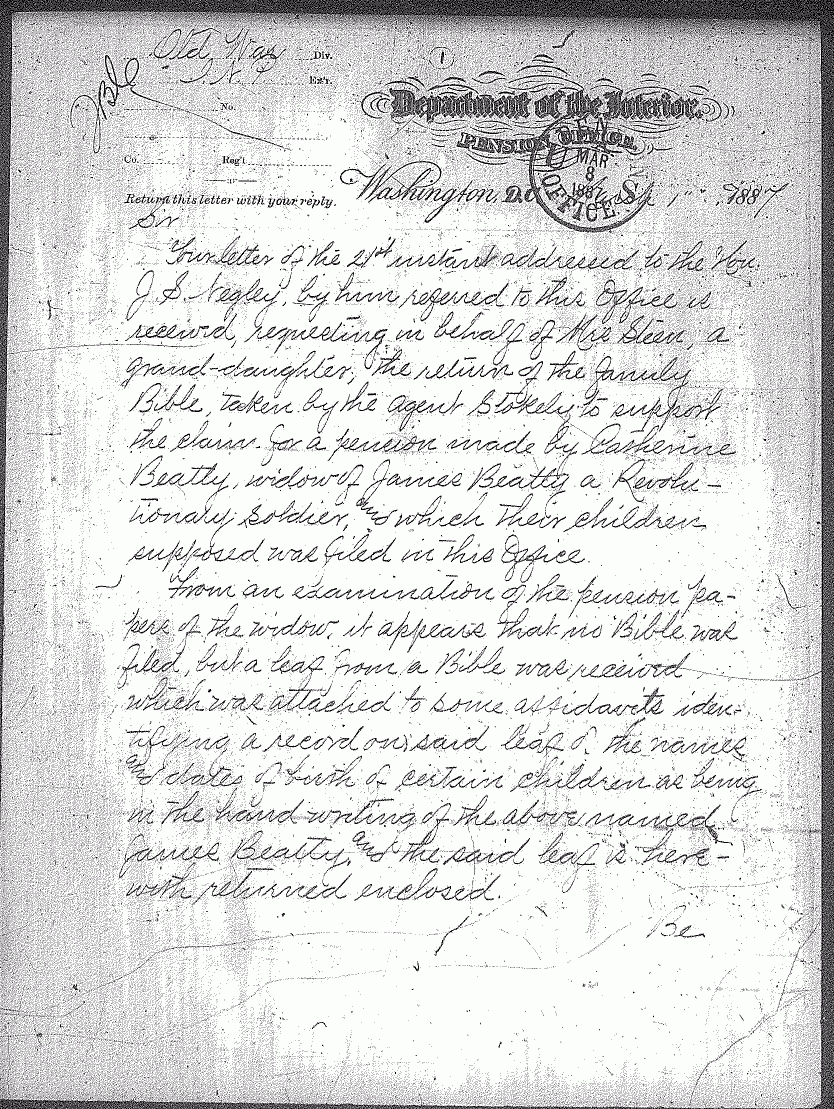 Old War Div.
Ex'r.
No.
Co. Reg't
Department of the Interior.
PENSION OFFICE.
Washington, D.C. 1887
MAR
8
1887
OFFICE
Return this letter with your reply.
Sir
Your letter of the 21st instant addressed to the Hon.
J S Negley, by him referred to this Office is
received, requesting in behalf of Mrs Steen, a
grand-daughter, the return of the family
Bible, taken by the agent Stokely to support
the claim for a pension made by Catherine
Beatty, widow of James Beatty a Revolu-
tionary Soldier, and which their children
supposed was filed in this Office.
From an examination of the pension pa-
pers of the widow, it appears that no Bible was
filed, but a leaf from a Bible was received
which was attached to some affidavits iden-
tifying a record on said leaf of the names
and dates of birth of certain children as being
in the hand writing of the above named
James Beatty, and the said leaf is here-
with returned enclosed.
Be